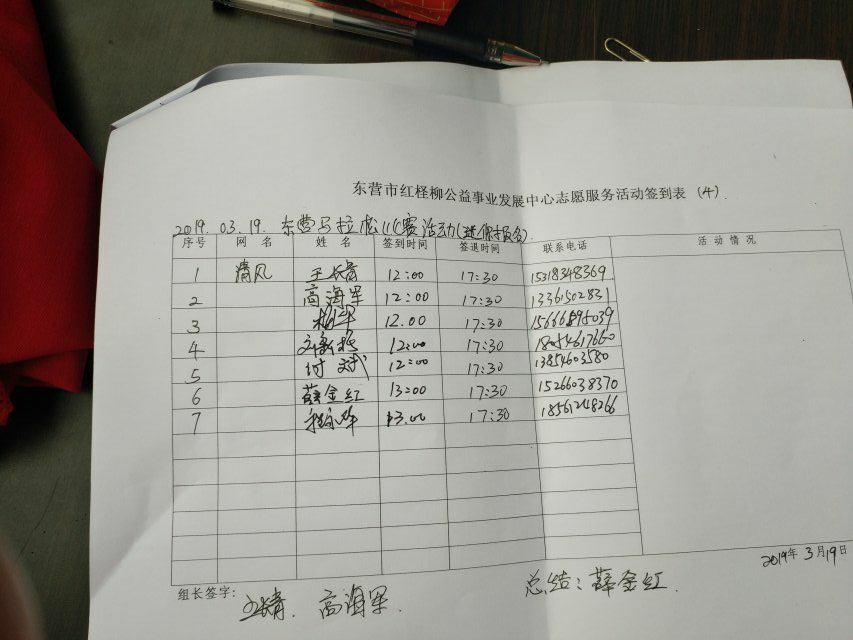 东营市红柽柳公益事业发展中心志愿服务活动签到表 (4)
2019. 03. 19. 东营马拉松比赛活动(迷你报名)
序号 网 名 姓 名 签到时间 签退时间 联系电话 活动情况
1 清风 12:00 17:30 15318348369
2 高海军 12:00 17:30 13361502831
3 12.00 17:30
4 12:00 17:30 18054617660
5 付文武 12:00 17:30 13854603580
6 薛金红 13:00 17:30 15266038370
7 13.00 17:30 18561248266
2019年3月19日
组长签字: 高海军. 总结: 薛金红.